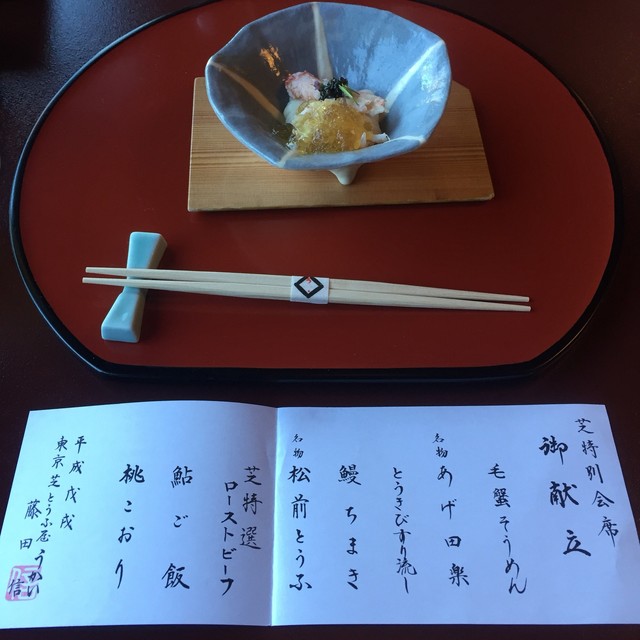 芝特別会席
御献立
毛蟹そうめん
名物 あげ田楽
とうきびすり流し
鰻ちまき
名物 松前とうふ
芝特選
ローストビーフ
鮎ご飯
桃こおり
平成戊戌
東京芝とうふ屋うかい
藤田